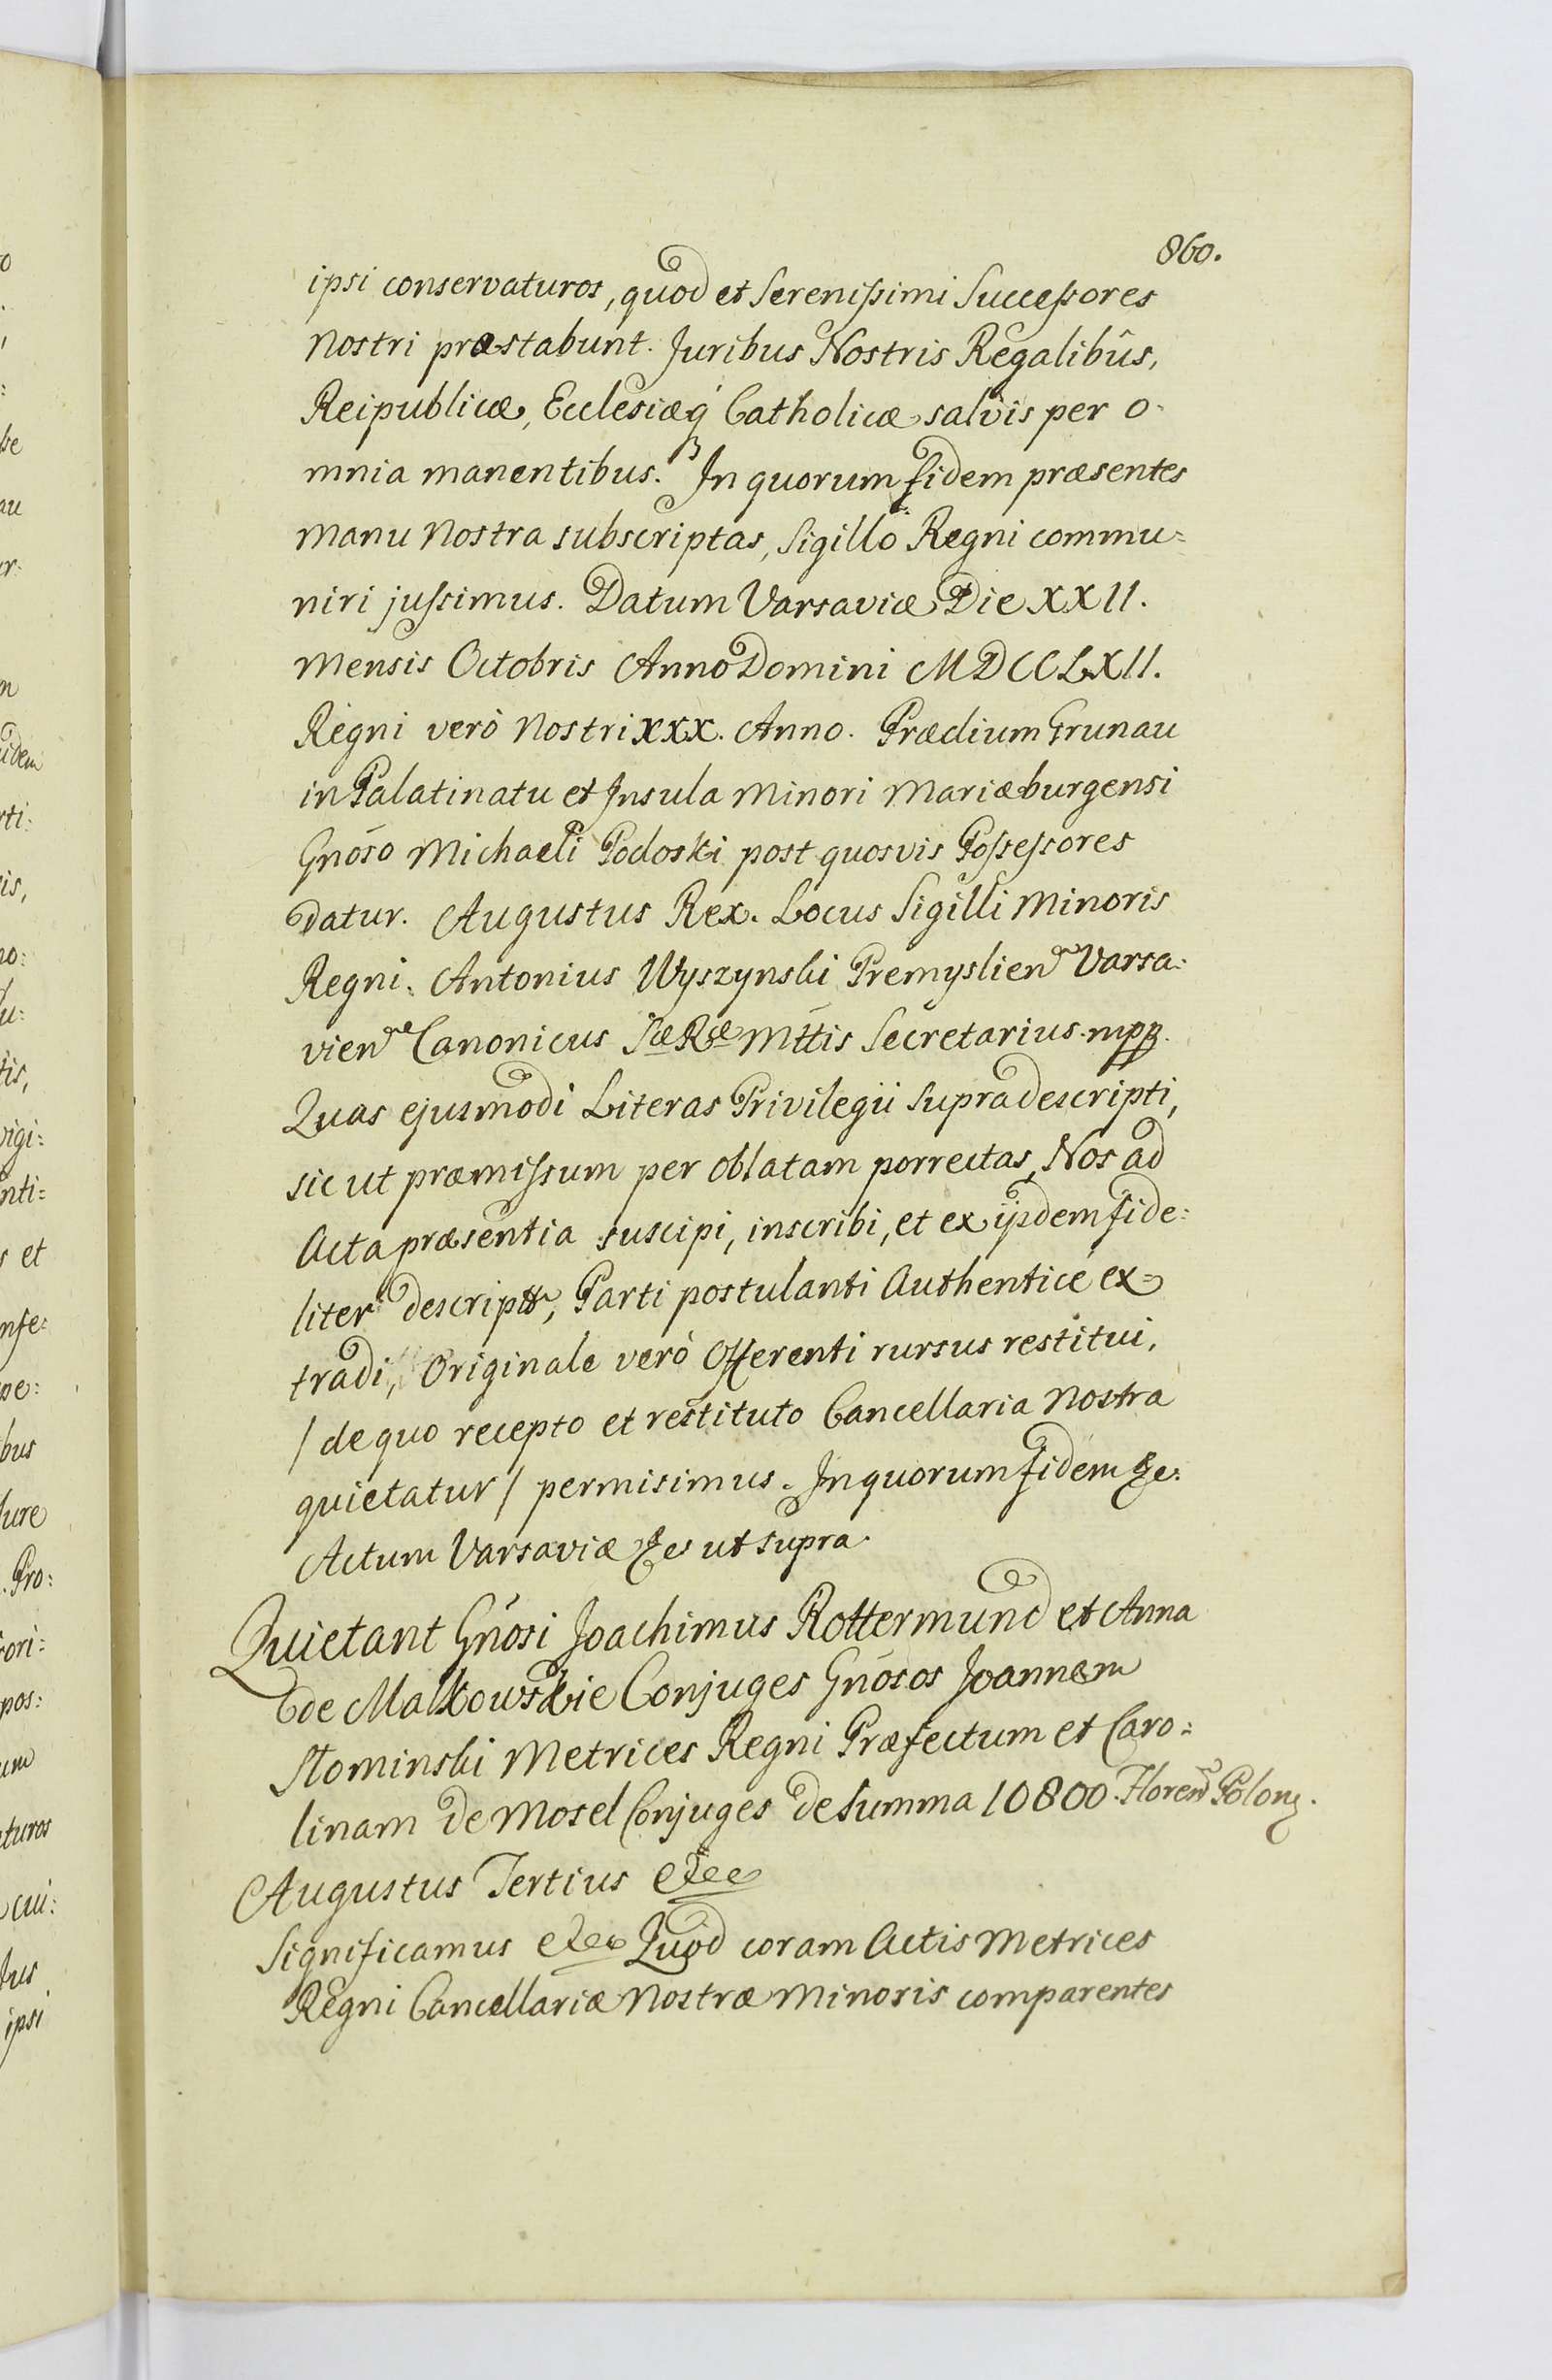 860.
ipsi conservaturos, quod et Serenissimi Successores
Nostri præstabunt. Juribus Nostris Regalibûs,
Reipublicæ, Ecclesiæq́ Catholicæ salvis per o-
mnia manentibus. In quorum fidem præsentes
Manu Nostra subscriptas, Sigillo Regni commu=
niri jussimus. Datum Varsaviæ Die XXII.
Mensis Octobris Anno Domini MDCCLXII.
Regni verò Nostri XXX. Anno. Prædium Grunau
in Palatinatu et Insula Minori Mariæburgensi
Gnõso Michaeli Podoski post quosvis Possessores
Datur. Augustus Rex. Locus Sigilli Minoris
Regni. Antonius Wyszynski Premyslien Varsa:
vien Canonicus Sæ Ræ Mttis Secretarius mpp.
Quas ejusmodi Literas Privilegii Supradescripti,
sic ut præmissum per Oblatam porrectas, Nos ad
Acta præsentia suscipi, inscribi, et ex ijsdem fide:
liter descriptt, Parti postulanti Authenticè ex=
tradi, Originale verò Offerenti rursus restitui,
/ de quo recepto et restituto Cancellaria Nostra
quietatur / permisimus. In quorum fidem &c:
Actum Varsaviæ &c ut supra.
Quietant Gnõsi Joachimus Rottermund et Anna
de Malkowskie Conjuges Gnõsos Joannem
Słominski Metrices Regni Præfectum et Caro:
linam de Mosel Conjuges de Summa 10800 Floren Polon.
Augustus Tertius etcc
Significamus etcc Quod coram Actis Metrices
Regni Cancellariæ Nostræ Minoris comparentes